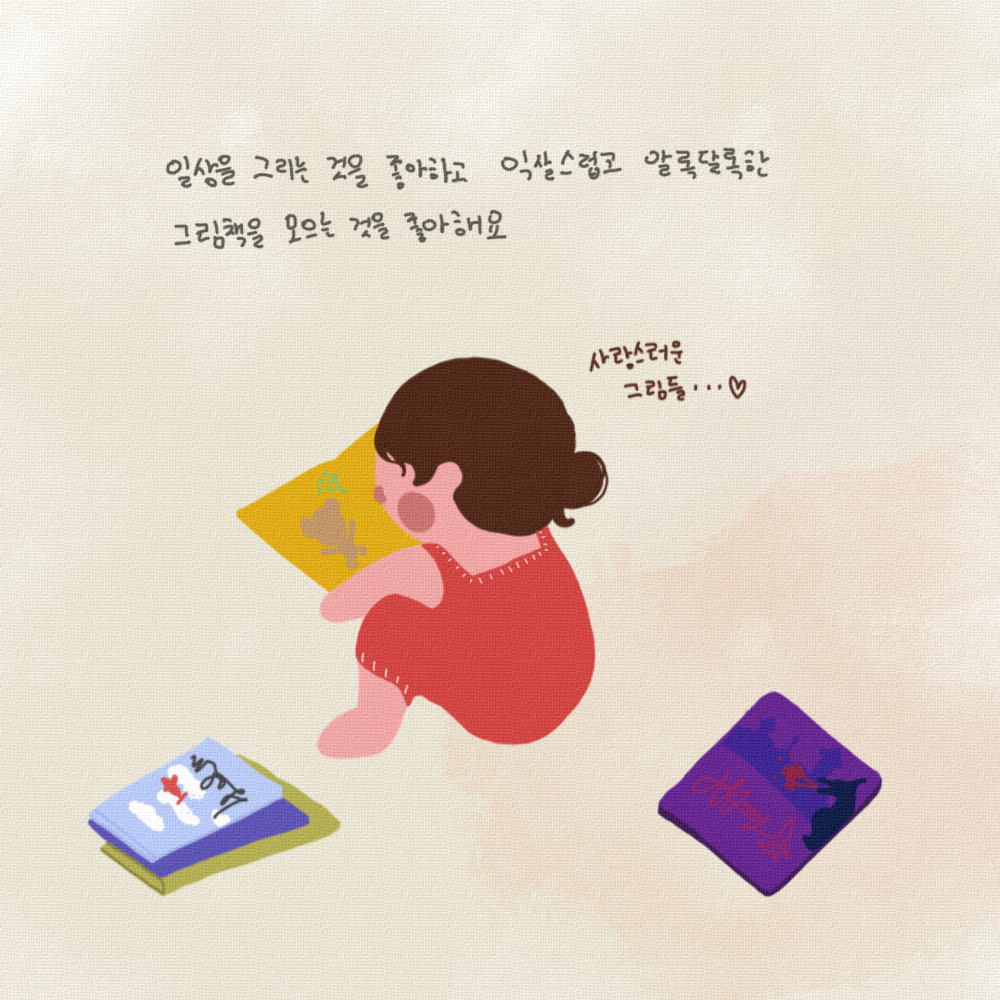 일상을 그리는 것을 좋아하고 익살스럽고 알록달록한
그림책을 모으는 것을 좋아해요
사랑스러운
그림들...♡